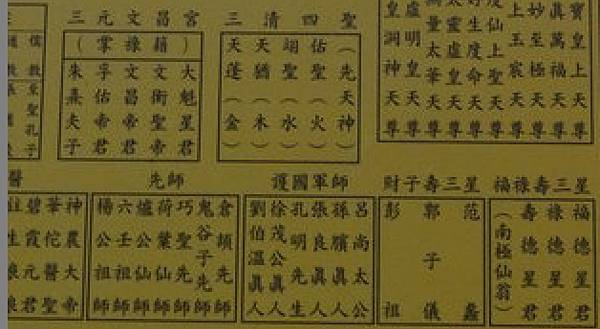 寶皇上天尊
真萬福天尊
妙至極天尊
上玉宸天尊
度仙上聖天尊
好生度命天尊
太靈虛皇天尊
量太華天尊
虛明皇天尊
皇洞神天尊
三清四聖
（先天神）
佑聖（火）
翊聖（水）
天猶（木）
天蓬（金）
三元文昌宮
（掌祿籍）
大魁星君
文衡聖帝
文昌帝君
孚佑帝君
朱熹夫子
儒教至聖孔子
福祿壽三星
福德星君
祿德星君
壽德星君
（南極仙翁）
財子壽三星
范蠡
郭子儀
彭祖
護國軍師
呂尚太公
孫臏真人
張良真人
孔明先生
徐茂公真人
劉伯溫真人
先師
倉頡先師
鬼谷子先師
巧聖先師
荷葉仙師
爐公仙師
六壬祖師
楊公祖師
醫
神農大帝
華佗醫聖
碧霞元君
註生娘